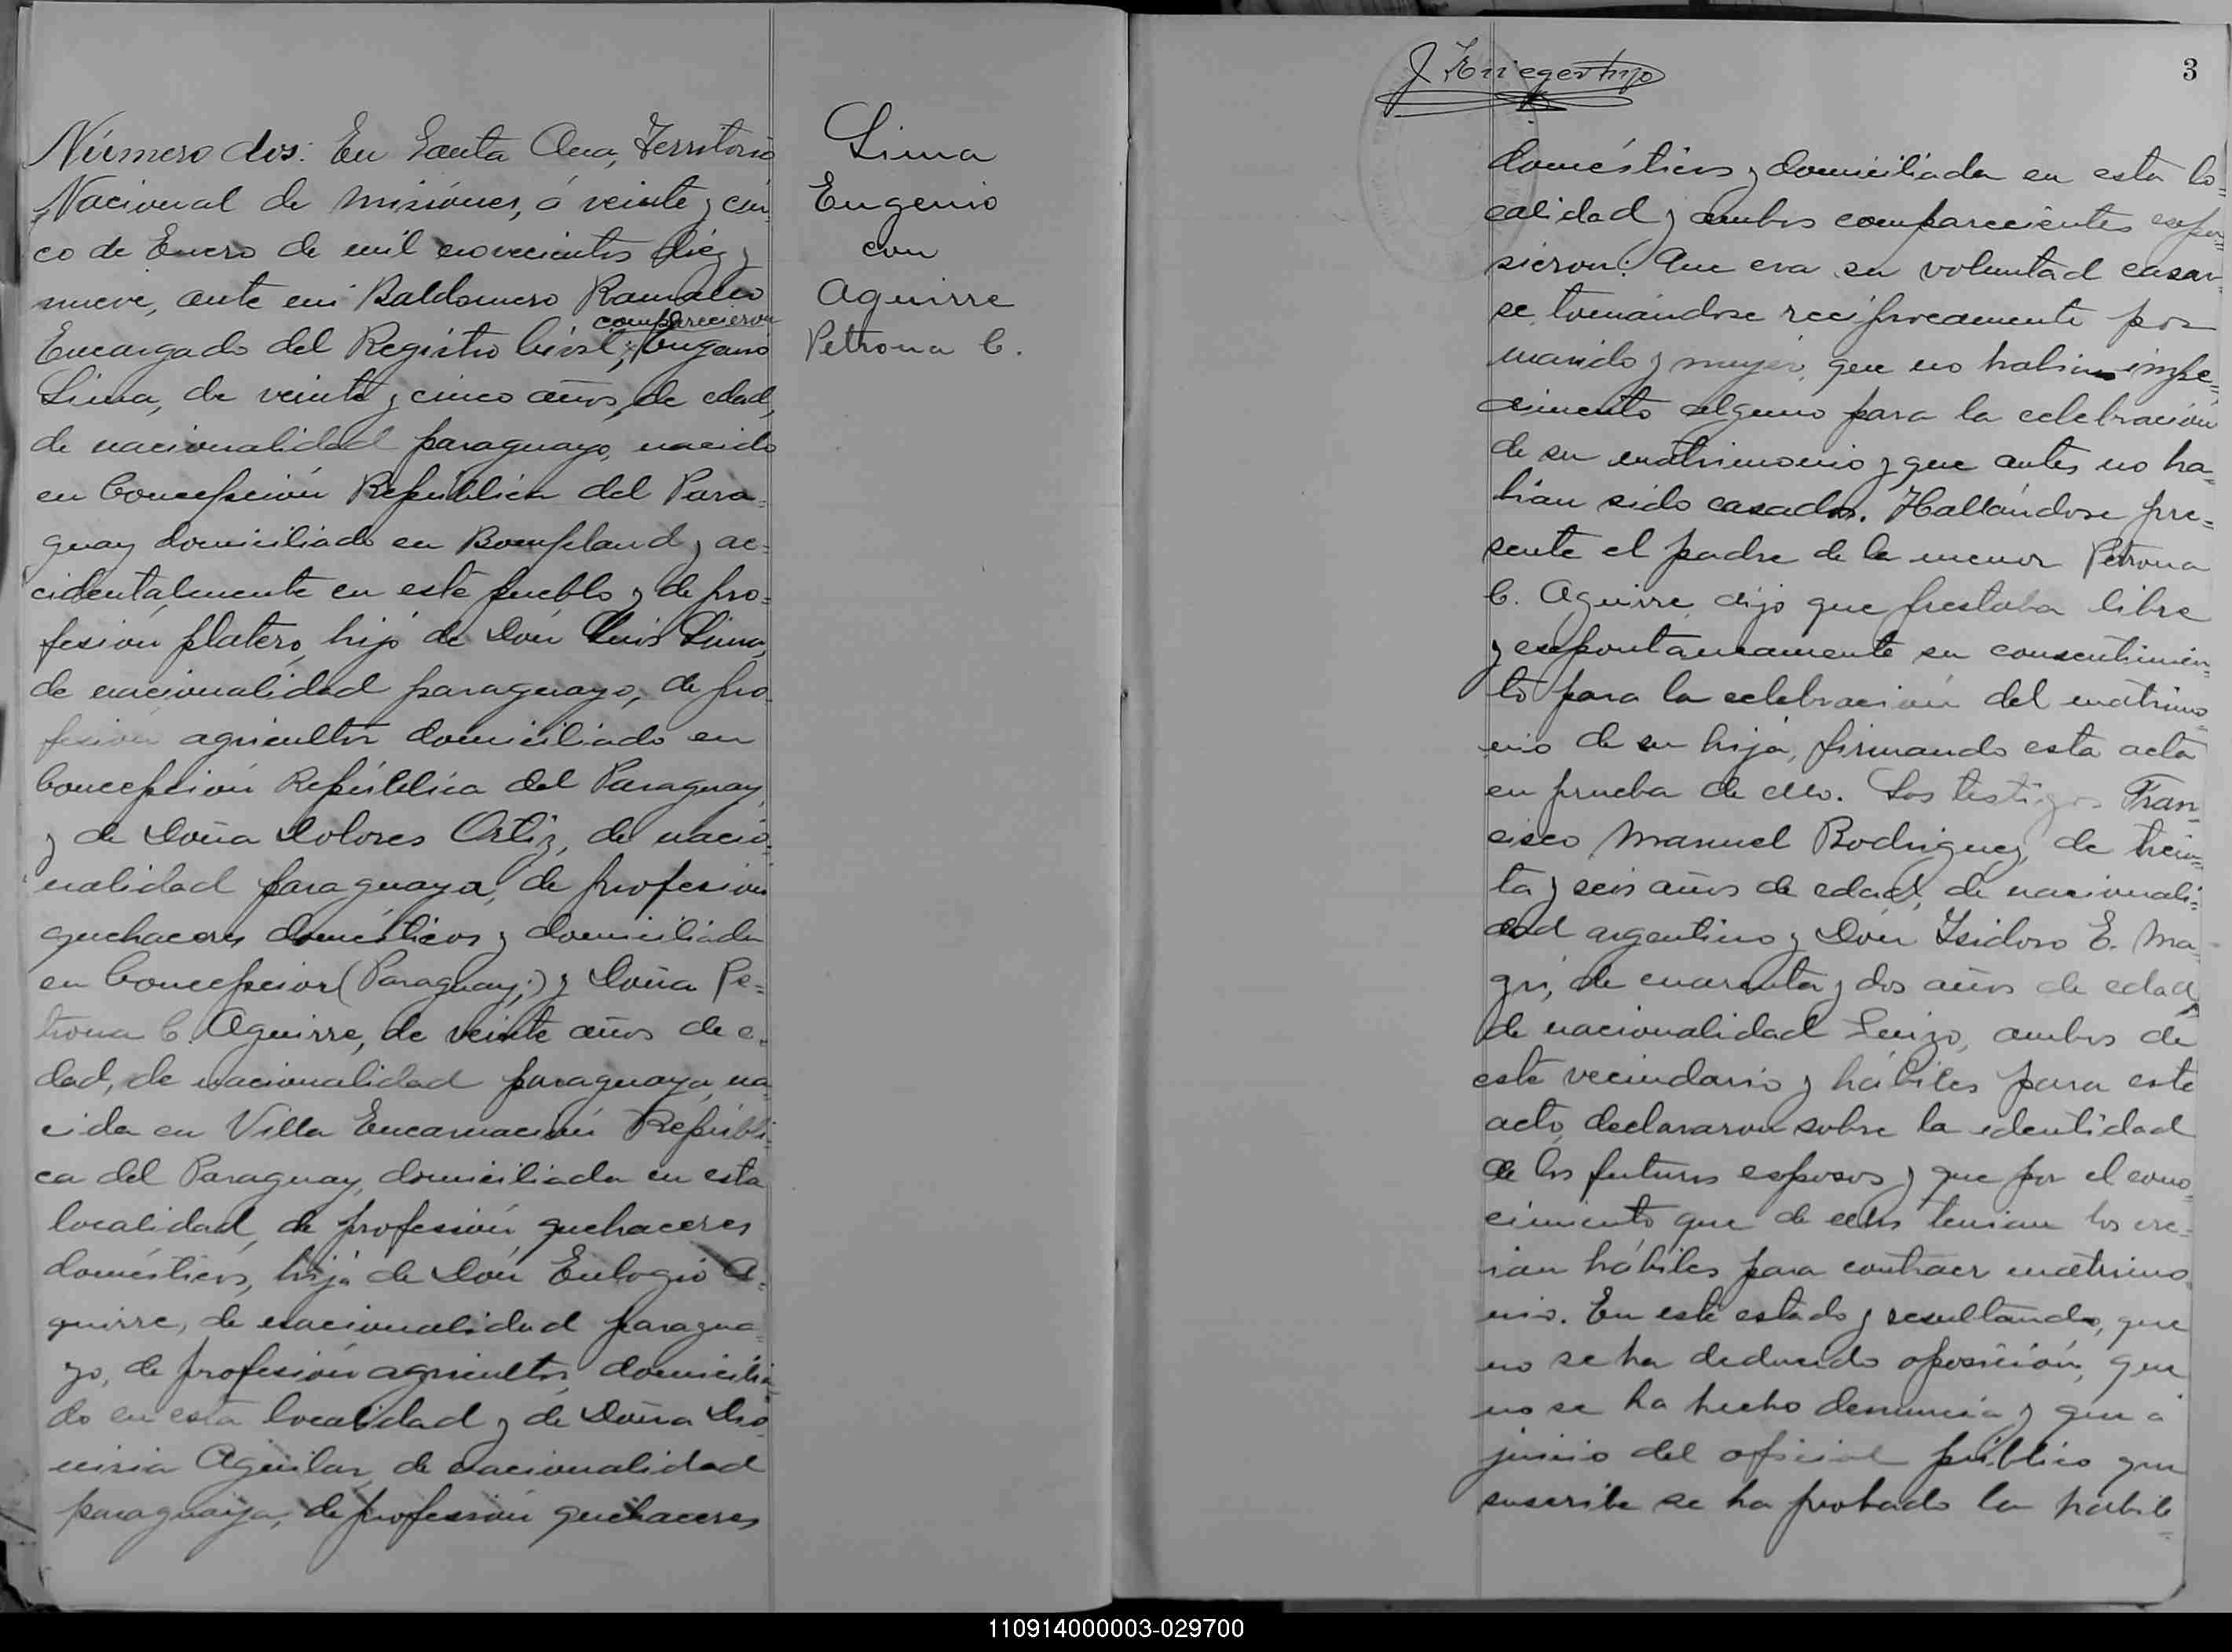 Número dos: En Santa Ana, Territorio
Nacional de Misiónes, á veinte y cin-
co de Enero de mil novecientos diéz y
nueve, ante mi Baldomero Ramallo
comparecieron
Encargado del Registro Civil, Eugenio
Lima, de veinte y cinco años, de edad,
de nacionalidad paraguayo, nacido
en Concepción República del Para-
guay domiciliado en Bompland y ac-
cidentalmente en este pueblo y de pro-
fesión platero, hijo de Dón Luis Lima,
de nacionalidad paraguayo, de pro-
fesión agricultor domiciliado en
Concepción República del Paraguay,
y de Doña Dolores Ortiz, de nacio-
nalidad paraguaya, de profesion
quehaceres domésticos y domiciliada
en Concepcion (Paraguay;) y Doña Pe-
trona C. Aguirre, de veinte años de e-
dad, de nacionalidad paraguaya, na-
cida en Villa Encarnación Repúbli-
ca del Paraguay, domiciliada en esta
localidad, de profesión, quehaceres
domésticos, hija de Dón Eulogio A-
guirre, de nacionalidad paragua-
yo, de profesión agricultor, domicilia-
do en esta localidad y de Doña Dio-
nisia Aguilar, de nacionalidad
paraguaya, de profesión quehaceres
Lima
Eugenio
con
Aguirre
Petrona C.
J. Krieger hijo
3
domésticos y domiciliada en esta lo-
calidad y ambos comparecientes espu-
sieron: Que era su voluntad casar-
se, tomándose reciprocamente por
marido y mujer, que no habia impe-
dimento alguno para la celebración
de su matrimonio y que antes no ha-
bian sido casados. Hallándose pre-
sente el padre de la menor Petrona
C. Aguirre, dijo que prestaba libre
y espontaneamente su consentimien-
to para la celebración del matrimo-
nio de su hija, firmando esta acta
en prueba de ello. Los testigos Fran-
cisco Manuel Rodriguez, de trein-
ta y seis años de edad, de nacionali-
dad argentino y Dón Isidoro E. Ma-
gri, de cuarenta y dos años de edad,
de nacionalidad Suizo, ambos de
este vecindario y hábiles para este
acto, declararon sobre la identidad
de los futuros esposos y que por el cono-
cimiento que de ellos tenian los cre-
ian hábiles para contraer matrimo-
nio. En este estado y resultando, que
no se ha deducido oposición, que
no se ha hecho denuncia y que á
juicio del oficial público que
suscribe se ha probado la habili-
110914000003-029700